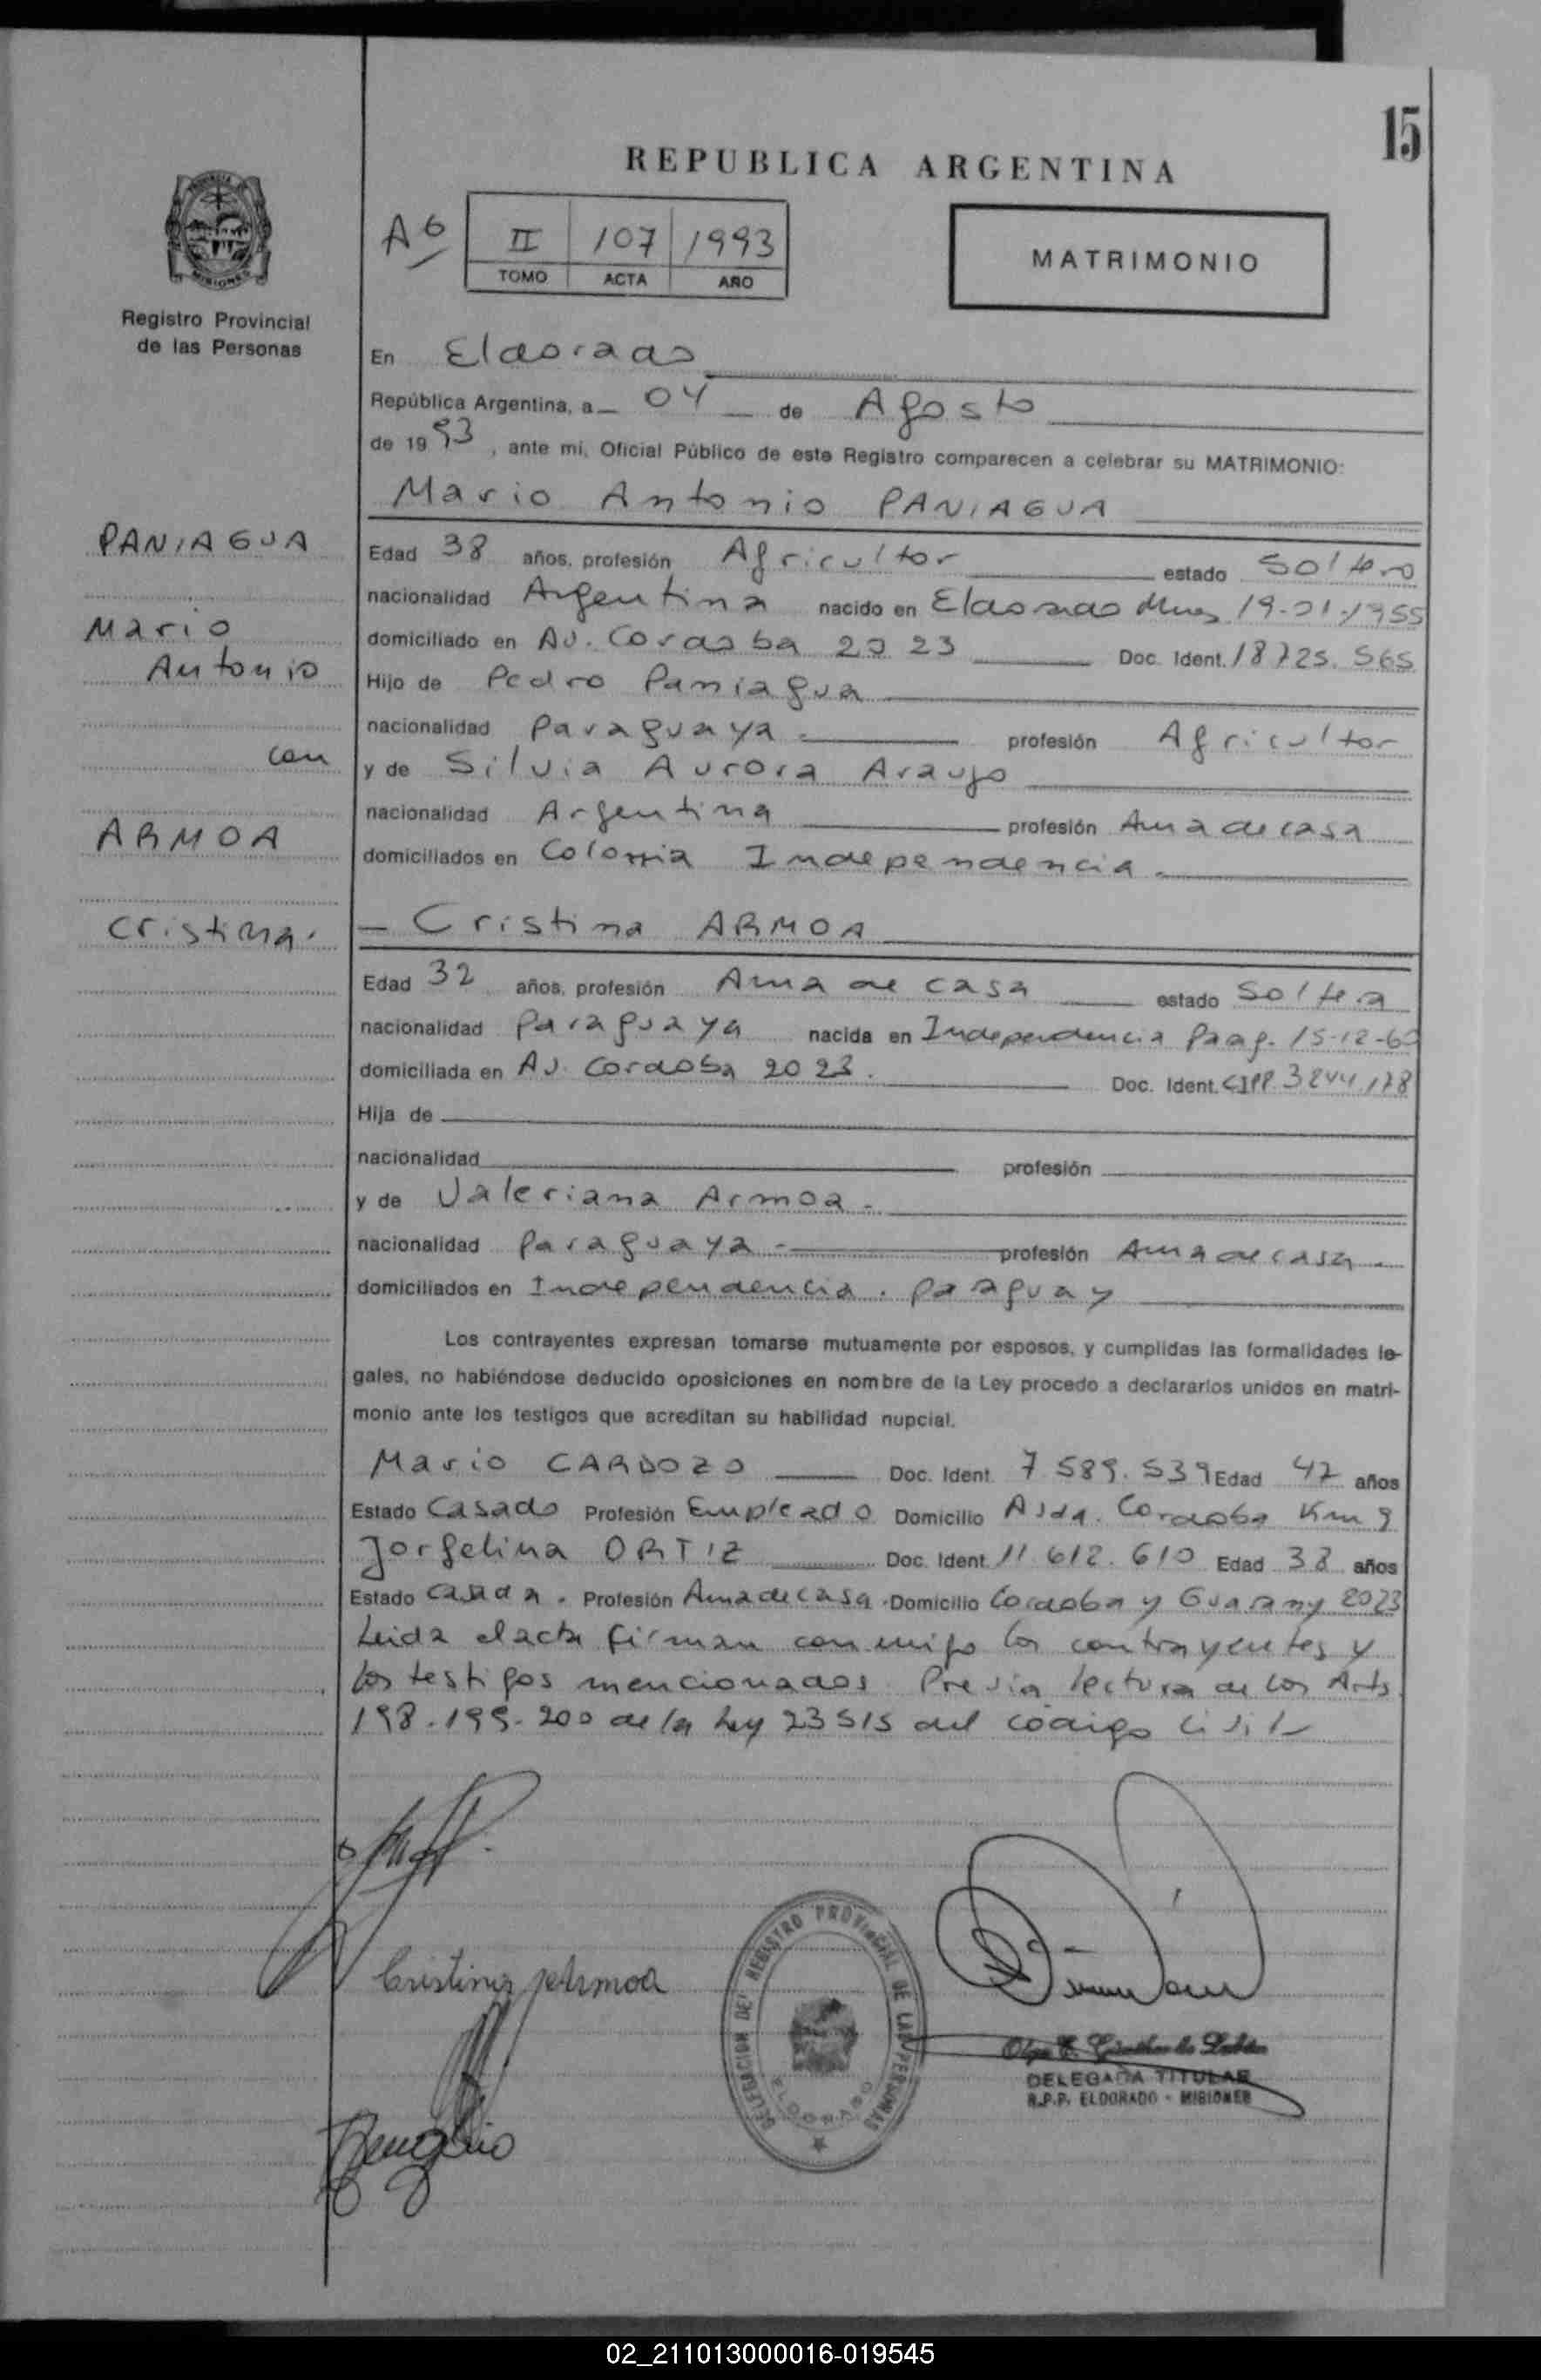 15
REPUBLICA ARGENTINA
A6
II 107 1993
TOMO ACTA AÑO
MATRIMONIO
PROVINCIA DE MISIONES
Registro Provincial
de las Personas
En Eldorado
República Argentina, a 04 de Agosto
de 1993, ante mí, Oficial Público de este Registro comparecen a celebrar su MATRIMONIO:
Mario Antonio PANIAGUA
PANIAGUA
Mario
Antonio
con
ARMOA
Cristina.
Edad 38 años, profesión Agricultor estado Soltero
nacionalidad Argentina nacido en Eldorado Mnes 19-01-1955
domiciliado en Av. Cordoba 2023 Doc. Ident. 18.725.565
Hijo de Pedro Paniagua
nacionalidad Paraguaya. profesión Agricultor
y de Silvia Aurora Araujo
nacionalidad Argentina profesión Ama de casa
domiciliados en Colonia Independencia.
- Cristina ARMOA
Edad 32 años, profesión Ama de casa estado Soltera
nacionalidad Paraguaya nacida en Independencia 15-12-60
domiciliada en Av. Cordoba 2023. Doc. Ident.
Hija de
nacionalidad profesión
y de Valeriana Armoa.
nacionalidad Paraguaya. profesión Ama de casa.
domiciliados en Independencia. Paraguay
Los contrayentes expresan tomarse mutuamente por esposos, y cumplidas las formalidades le-
gales, no habiéndose deducido oposiciones en nombre de la Ley procedo a declararlos unidos en matri-
monio ante los testigos que acreditan su habilidad nupcial.
Mario CARDOZO Doc. Ident. 7.589.539 Edad 42 años
Estado Casado Profesión Empleado Domicilio Avda. Cordoba Km 9
Jorgelina ORTIZ Doc. Ident. 11.612.610 Edad 38 años
Estado casada. Profesión Ama de casa. Domicilio Cordoba y Guarany 2023
Leida el acta firman conmigo los contrayentes y
los testigos mencionados. Previa lectura de los Arts.
198-199-200 de la Ley 23515 del codigo Civil
Cristina Armoa
DELEGACION DEL REGISTRO PROVINCIAL DE LAS PERSONAS
ELDORADO
DELEGADA TITULAR
R.P.P. ELDORADO - MISIONES
02_211013000016-019545